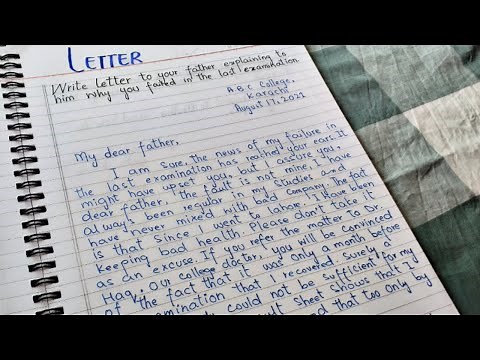 LETTER
Write Letter to your father explaining to
him why you failed in the last examination
A.B.C College,
Karachi
August 17, 2021
My dear father,
I am sure, the news of my failure in
the last examination has reached your ears. It
might have upset you, but I assure you,
dear father, the fault is not mine. I have
always been regular in my studies and
have never mixed with bad company. The fact
is that since I went to lahore, I have been
keeping bad health. Please don't take it
as an excuse. If you refer the matter to Dr
Haq, our college doctor, you will be convinced
of the fact that it was only a month before
examination that I recovered. surely a
could not be sufficient for my
sheet shows that I
and that too only by